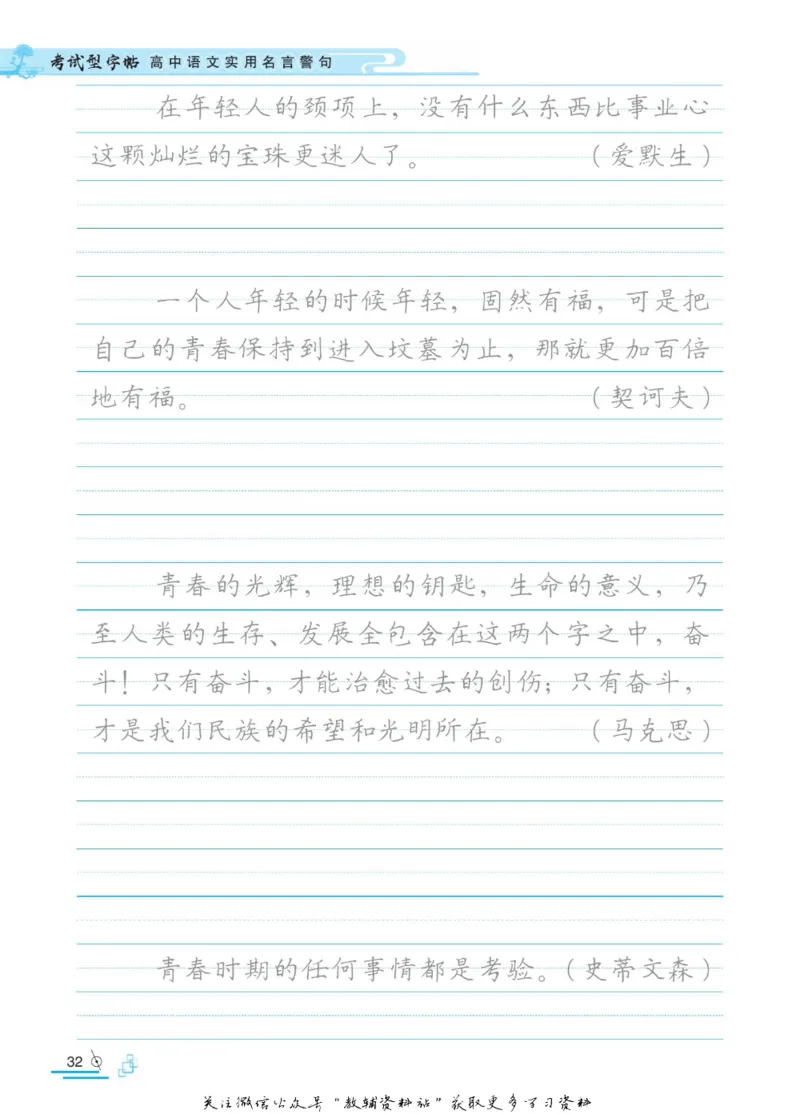 考试型字帖 高中语文实用名言警句
在年轻人的颈项上，没有什么东西比事业心
这颗灿烂的宝珠更迷人了。（爱默生）
一个人年轻的时候年轻，固然有福，可是把
自己的青春保持到进入坟墓为止，那就更加百倍
地有福。（契诃夫）
青春的光辉，理想的钥匙，生命的意义，乃
至人类的生存、发展全包含在这两个字之中，奋
斗！只有奋斗，才能治愈过去的创伤；只有奋斗，
才是我们民族的希望和光明所在。（马克思）
青春时期的任何事情都是考验。（史蒂文森）
32
关注微信公众号"教辅资料站"获取更多学习资料